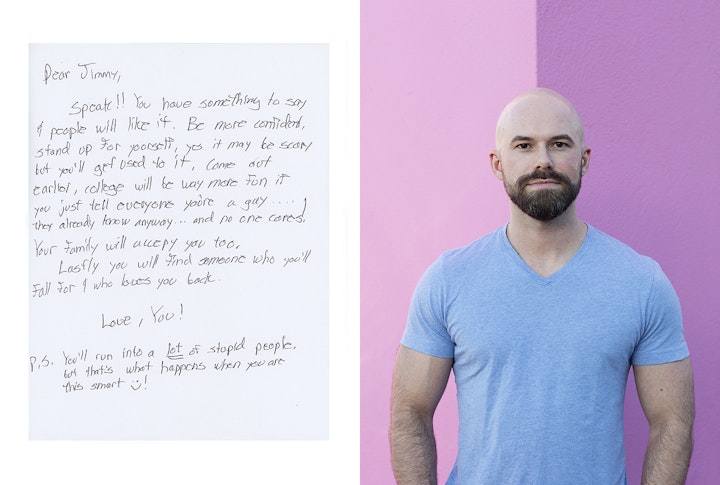 Dear Jimmy,
Speak!! You have something to say
& people will like it. Be more confident,
stand up for yourself, yes it may be scary
but you'll get used to it, Come out
earlier, college will be way more fun if
you just tell everyone you're a gay....
they already know anyway... and no one cares!
Your family will accept you too,
Lastly you will find someone who you'll
fall for & who loves you back.
Love, You!
P.S. You'll run into a lot of stupid people,
but that's what happens when you are
this smart !